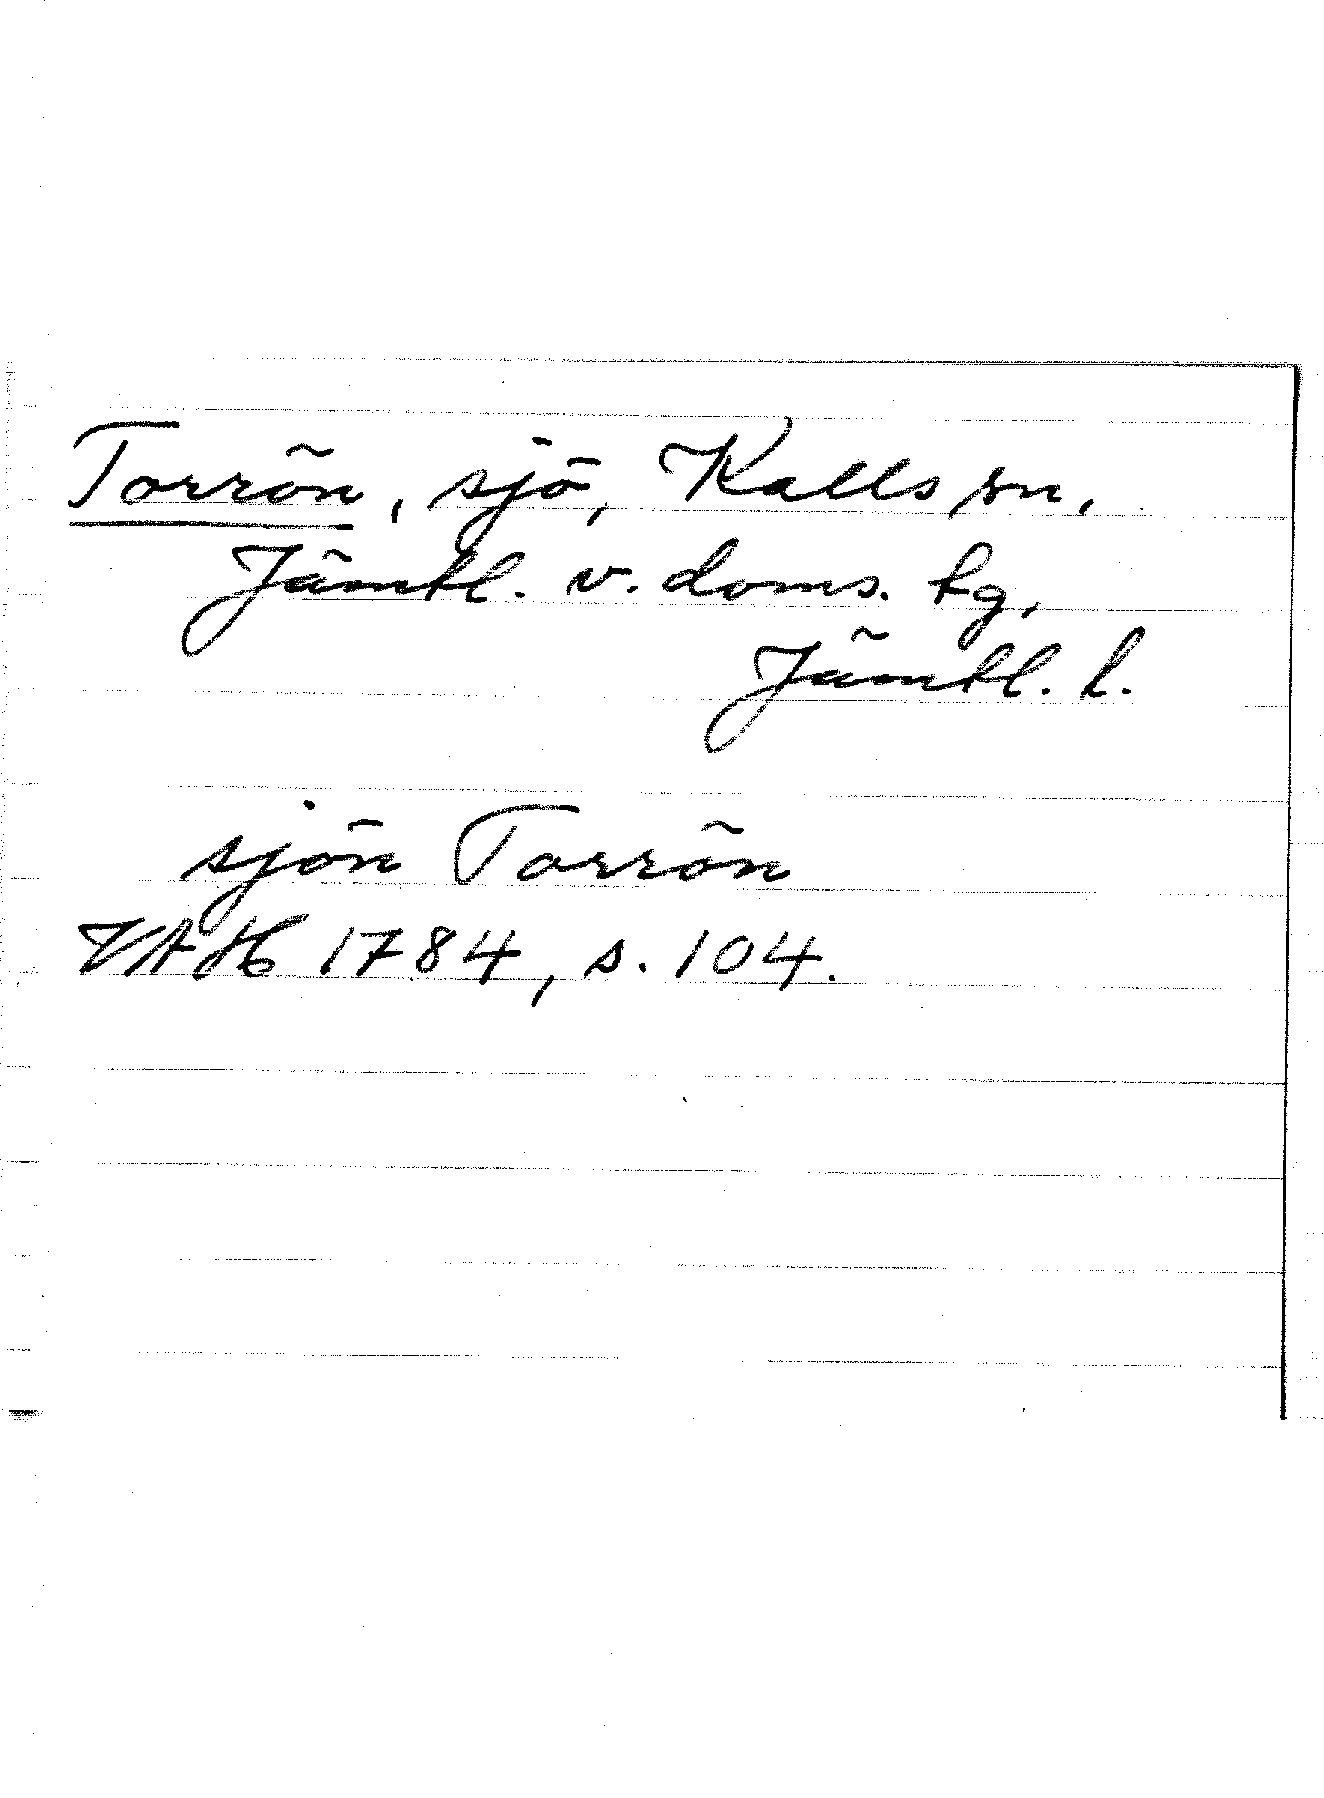 Torrön, sjö, Kalls sn,
Jämtl. v. doms. tg,
Jämtl. l.
sjön Torrön
VAH 1784, s. 104.